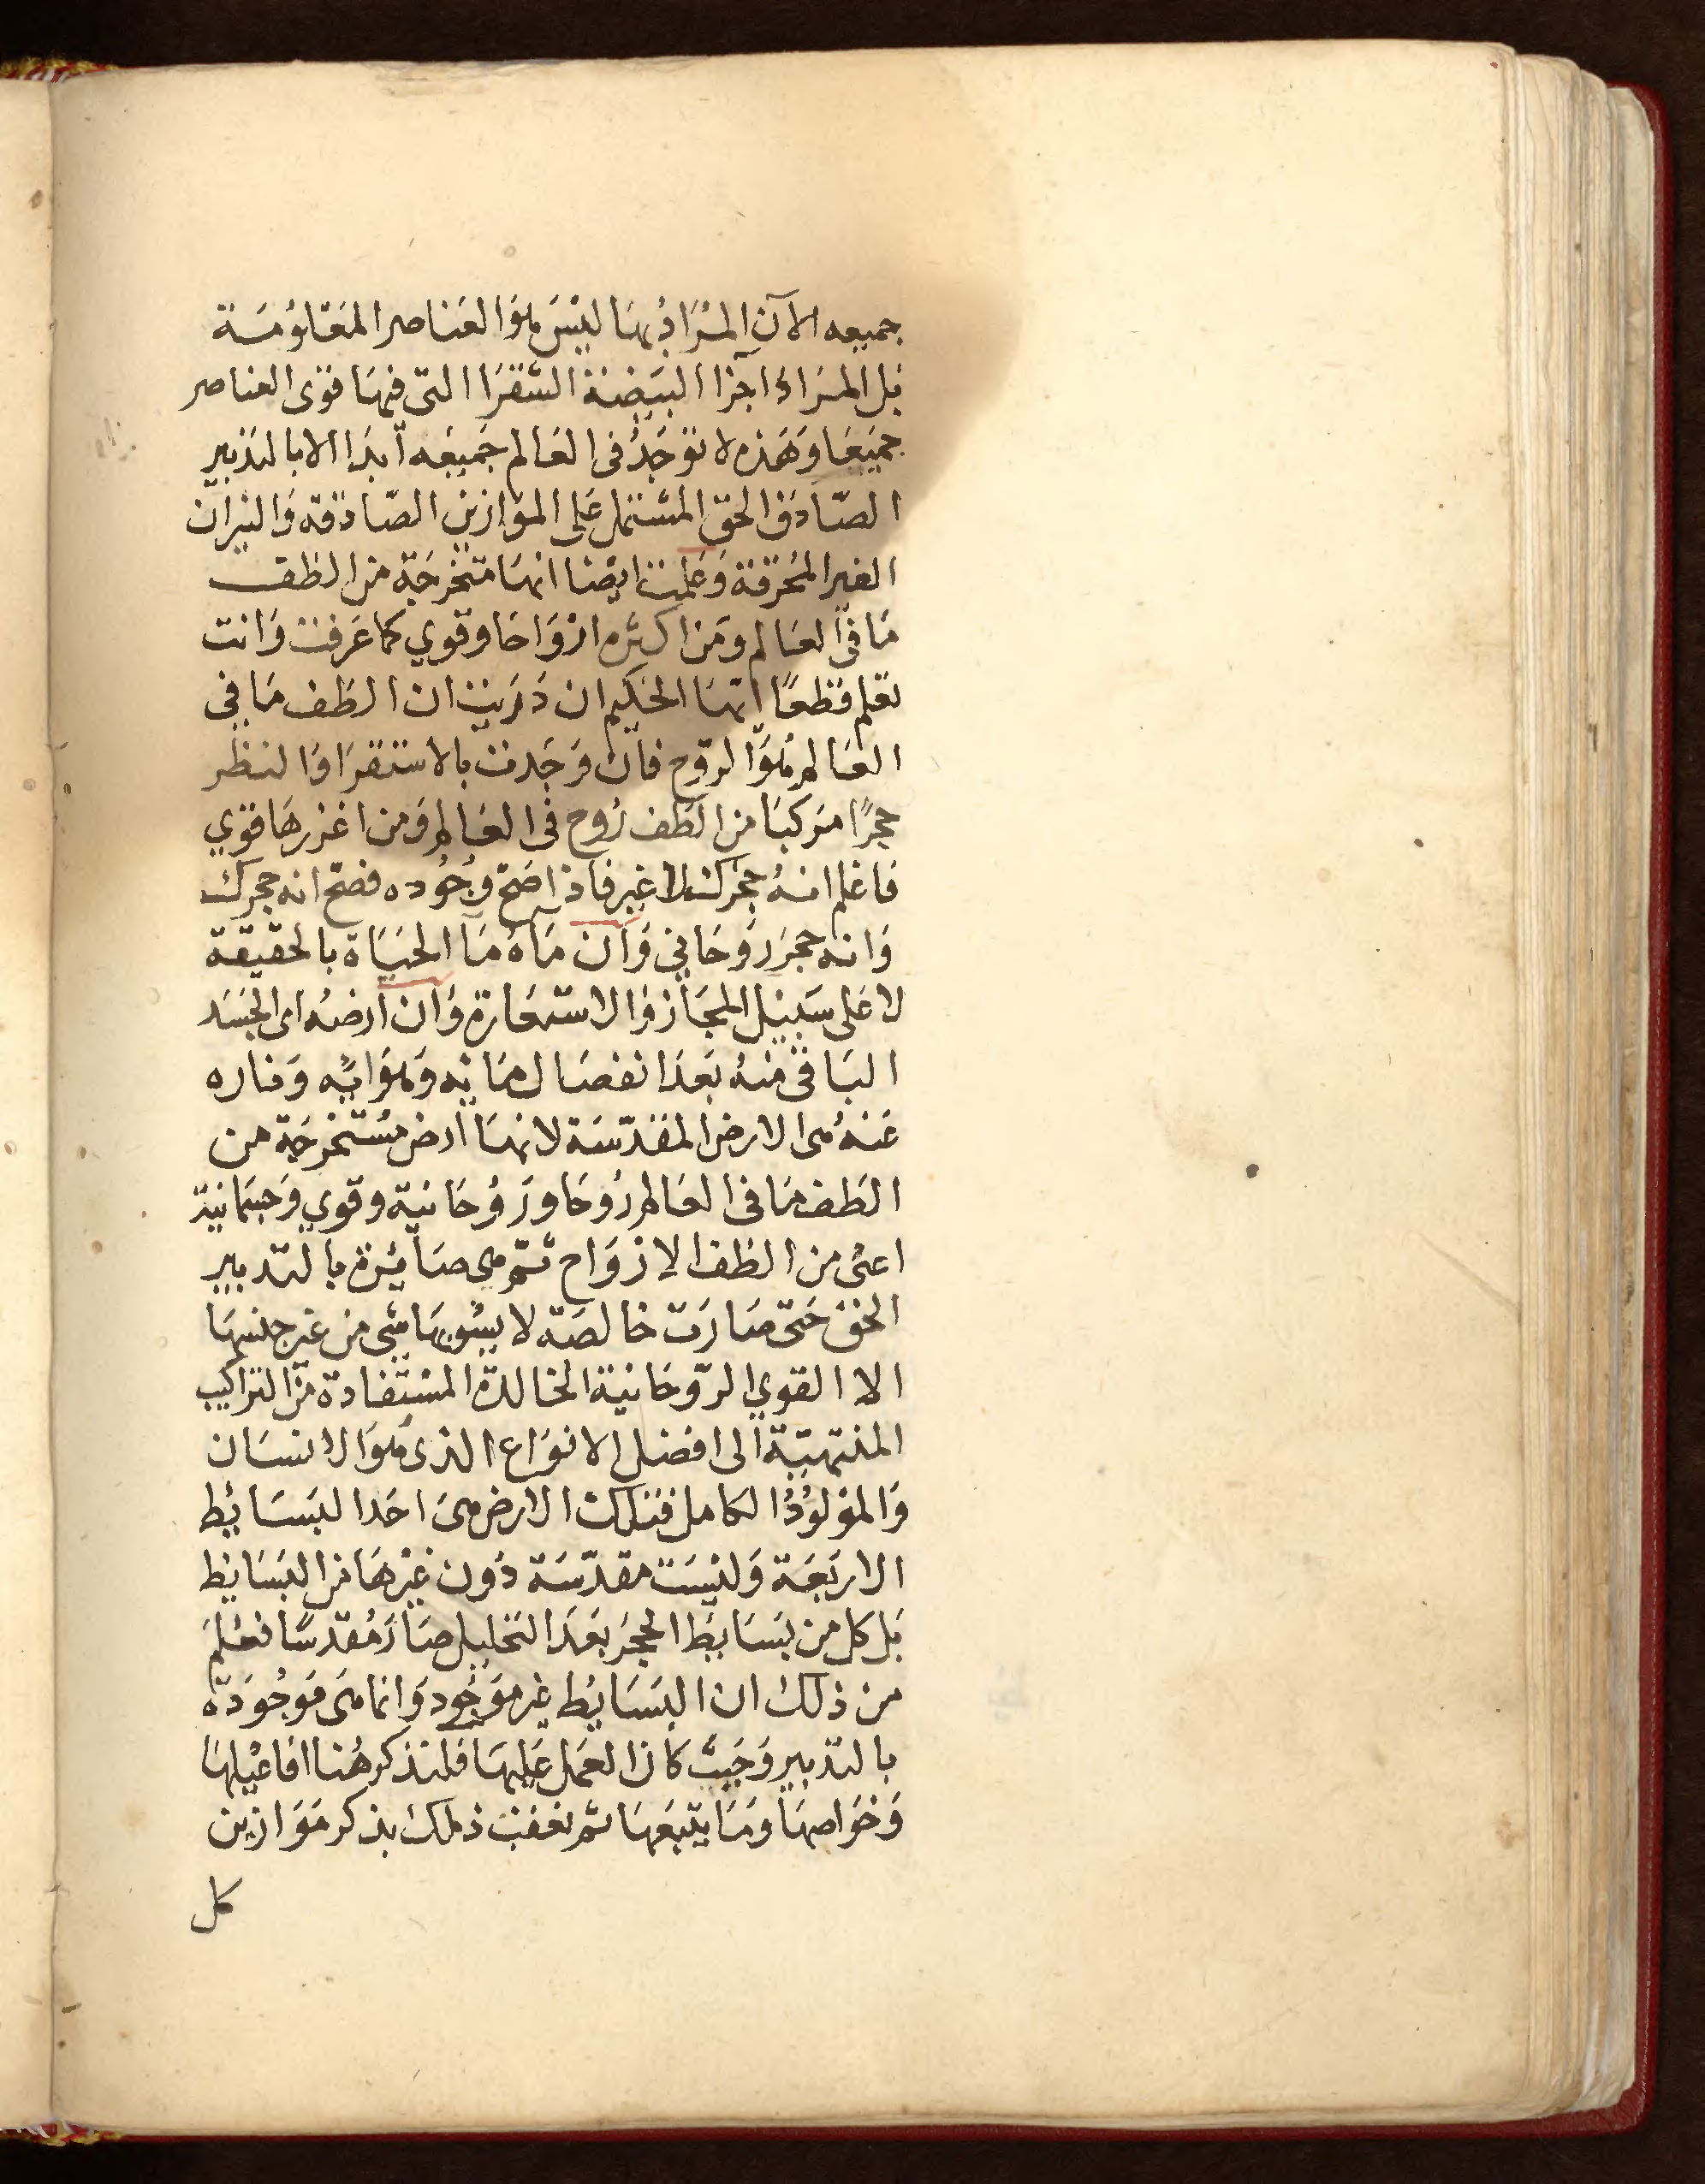 جميعه الآن المراد بها ليس هو العناصر المعلومة
بل المراد اجزا البيضة الشقرا التى فيها قوى العناصر
جميعا وهذه لا توجد فى العالم جميعه ابدا الا بالتدبير
الصّادق الحق المشتمل على الموازين الصّادقه والنيران
الغير المحرقة وعلمت ايضا انها متخرجة من الطف
ما فى العالم ومن اكثره ارواحا وقوي كما عرفت وانت
تعلم قطعًا ايها الحكيم ان دريت ان الطف ما في
العالم هو الروح فان وجدت بالاستقرا والنظر
حجرًا مركبا من الطف روح فى العالم ومن اغزرها قوي
فاعلم انه حجرك لا غير فاذا صح وجوده فصح انه حجرك
وانه حجر روحاني وان ماه مآ الحياة بالحقيقة
لا على سبيل المجاز والاستعارة وان ارضه اى الجسد
الباقى منه بعد انفصال مائه وهوائه وناره
عنه هى الارض المقدّسة لانها ارض مستخرجة من
الطف ما فى العالم روحا وروحانية وقوي وجسمانية
اعنى من الطف الارواح ثم هى صائرة بالتدبير
الحق حتى صارت خالصة لا يشوبها شى من غير جنسها
الا القوي الروحانية الخالدة المستفادة من التراكيب
المنتهية الى افضل الانواع الذى هو الانسان
والمولود الكامل فتلك الارض هى احد البسائط
الاربعة وليست مقدّسة دون غيرها من البسايط
بل كل من بسايط الحجر بعد التحليل صار مقدسًا فعلم
من ذلك ان البسايط غير موجود وانما هى موجودة
بالتدبير وحيث كان العمل عليها فلنذكر هنا افاعيلها
وخواصها وما يتبعها ثم نعقب ذلك بذكر موازين
كل